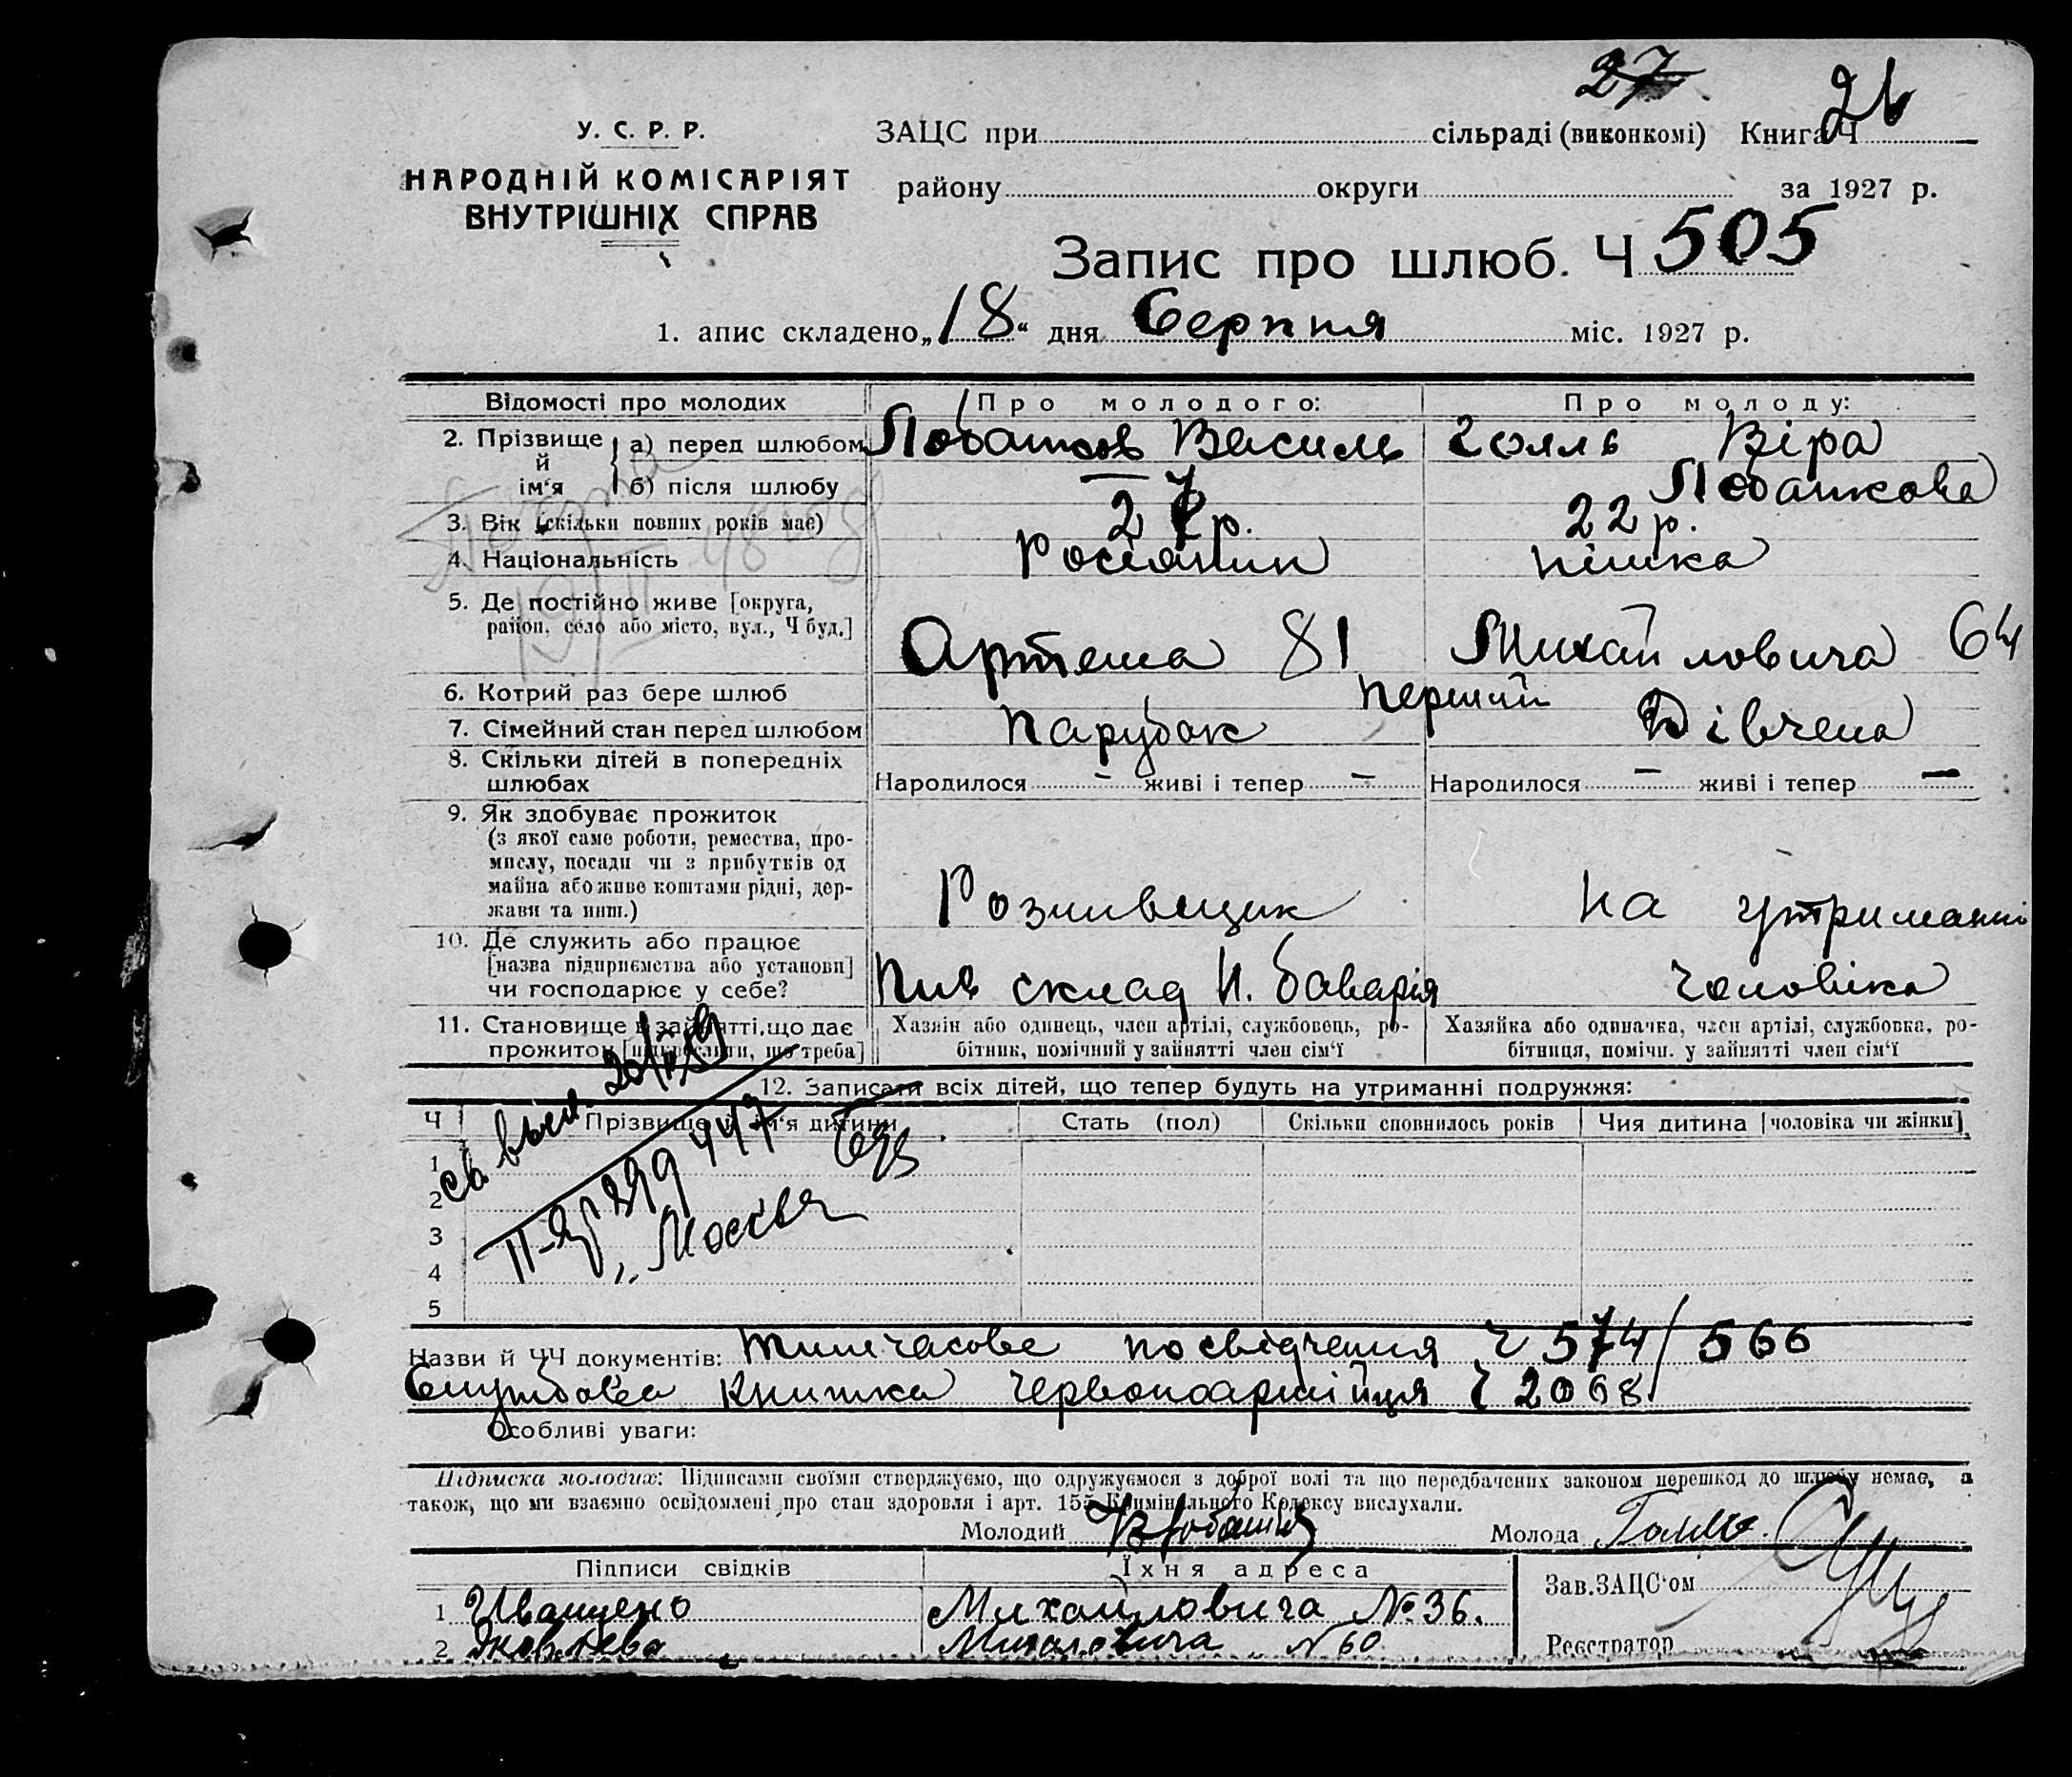 27 26
У. С. Р. Р.
НАРОДНІЙ КОМІСАРІЯТ
ВНУТРІШНІХ СПРАВ
ЗАЦС при сільраді (виконкомі) Книга Ч
району округи за 1927 р.
Запис про шлюб. Ч 505
1. апис складено „18“ дня Серпня міс. 1927 р.
Відомості про молодих Про молодого: Про молоду:
2. Прізвище й ім‘я а) перед шлюбом Лобанков Василь Голль Віра
б) після шлюбу — Лобанкова
3. Вік (скільки повних років має) 27 р. 22 р.
4. Національність Росіянин німка
5. Де постійно живе [округа,
район, село або місто, вул., Ч буд.] Артема 81 Михайловича 64
6. Котрий раз бере шлюб перший
7. Сімейний стан перед шлюбом парубок Дівчена
8. Скільки дітей в попередніх
шлюбах Народилося — живі і тепер — Народилося — живі і тепер —
9. Як здобуває прожиток
(з якої саме роботи, ремества, про-
мислу, посади чи з прибутків од
майна або живе коштами рідні, дер-
жави та инш.) Розливщик на утриманні
10. Де служить або працює
[назва підприємства або установи]
чи господарює у себе? Пив склад Н. Баварія чоловіка
11. Становище в зайнятті, що дає
прожиток [підкреслити, що треба]
Хазяін або одинець, член артілі, службовець, ро-
бітник, помічний у зайнятті член сім‘ї
Хазяйка або одиначка, член артілі, службовка, ро-
бітниця, помічн. у зайнятті член сім‘ї
12. Записати всіх дітей, що тепер будуть на утриманні подружжя:
Ч Прізвище й ім‘я дитини Стать (пол) Скільки сповнилось років Чия дитина [чоловіка чи жінки]
1
2
3
4
5
Москва
Назви й ЧЧ документів: Тимчасове посвідчення Ч 574/566
Службова книжка червоноармійця Ч 2068
Особливі уваги:
Підписка молодих: Підписами своїми стверджуємо, що одружуємося з доброї волі та що передбачених законом перешкод до шлюбу немає, а
також, що ми взаємно освідомлені про стан здоровля і арт. 155 Кримінального Кодексу вислухали.
Молодий Молода Голль
Підписи свідків Їхня адреса
1 Иващено Михайловича № 36.
2 Яковлева Михаловича № 60
Зав. ЗАЦС‘ом
Реєстратор